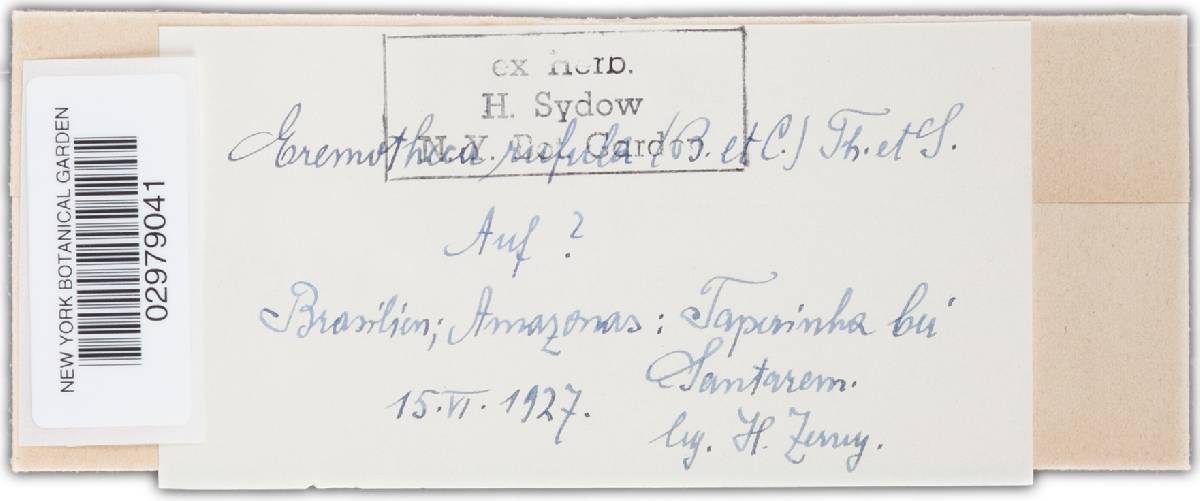 ex Herb.
H. Sydow
N.Y. Bot. Garden.
Eremotheca rufula (B. et C.) Th. et S.
Auf ?
Brasilien; Amazonas: Taperinha bei
Santarem.
15.VI.1927.
leg. H. Zerny.
NEW YORK BOTANICAL GARDEN
02979041